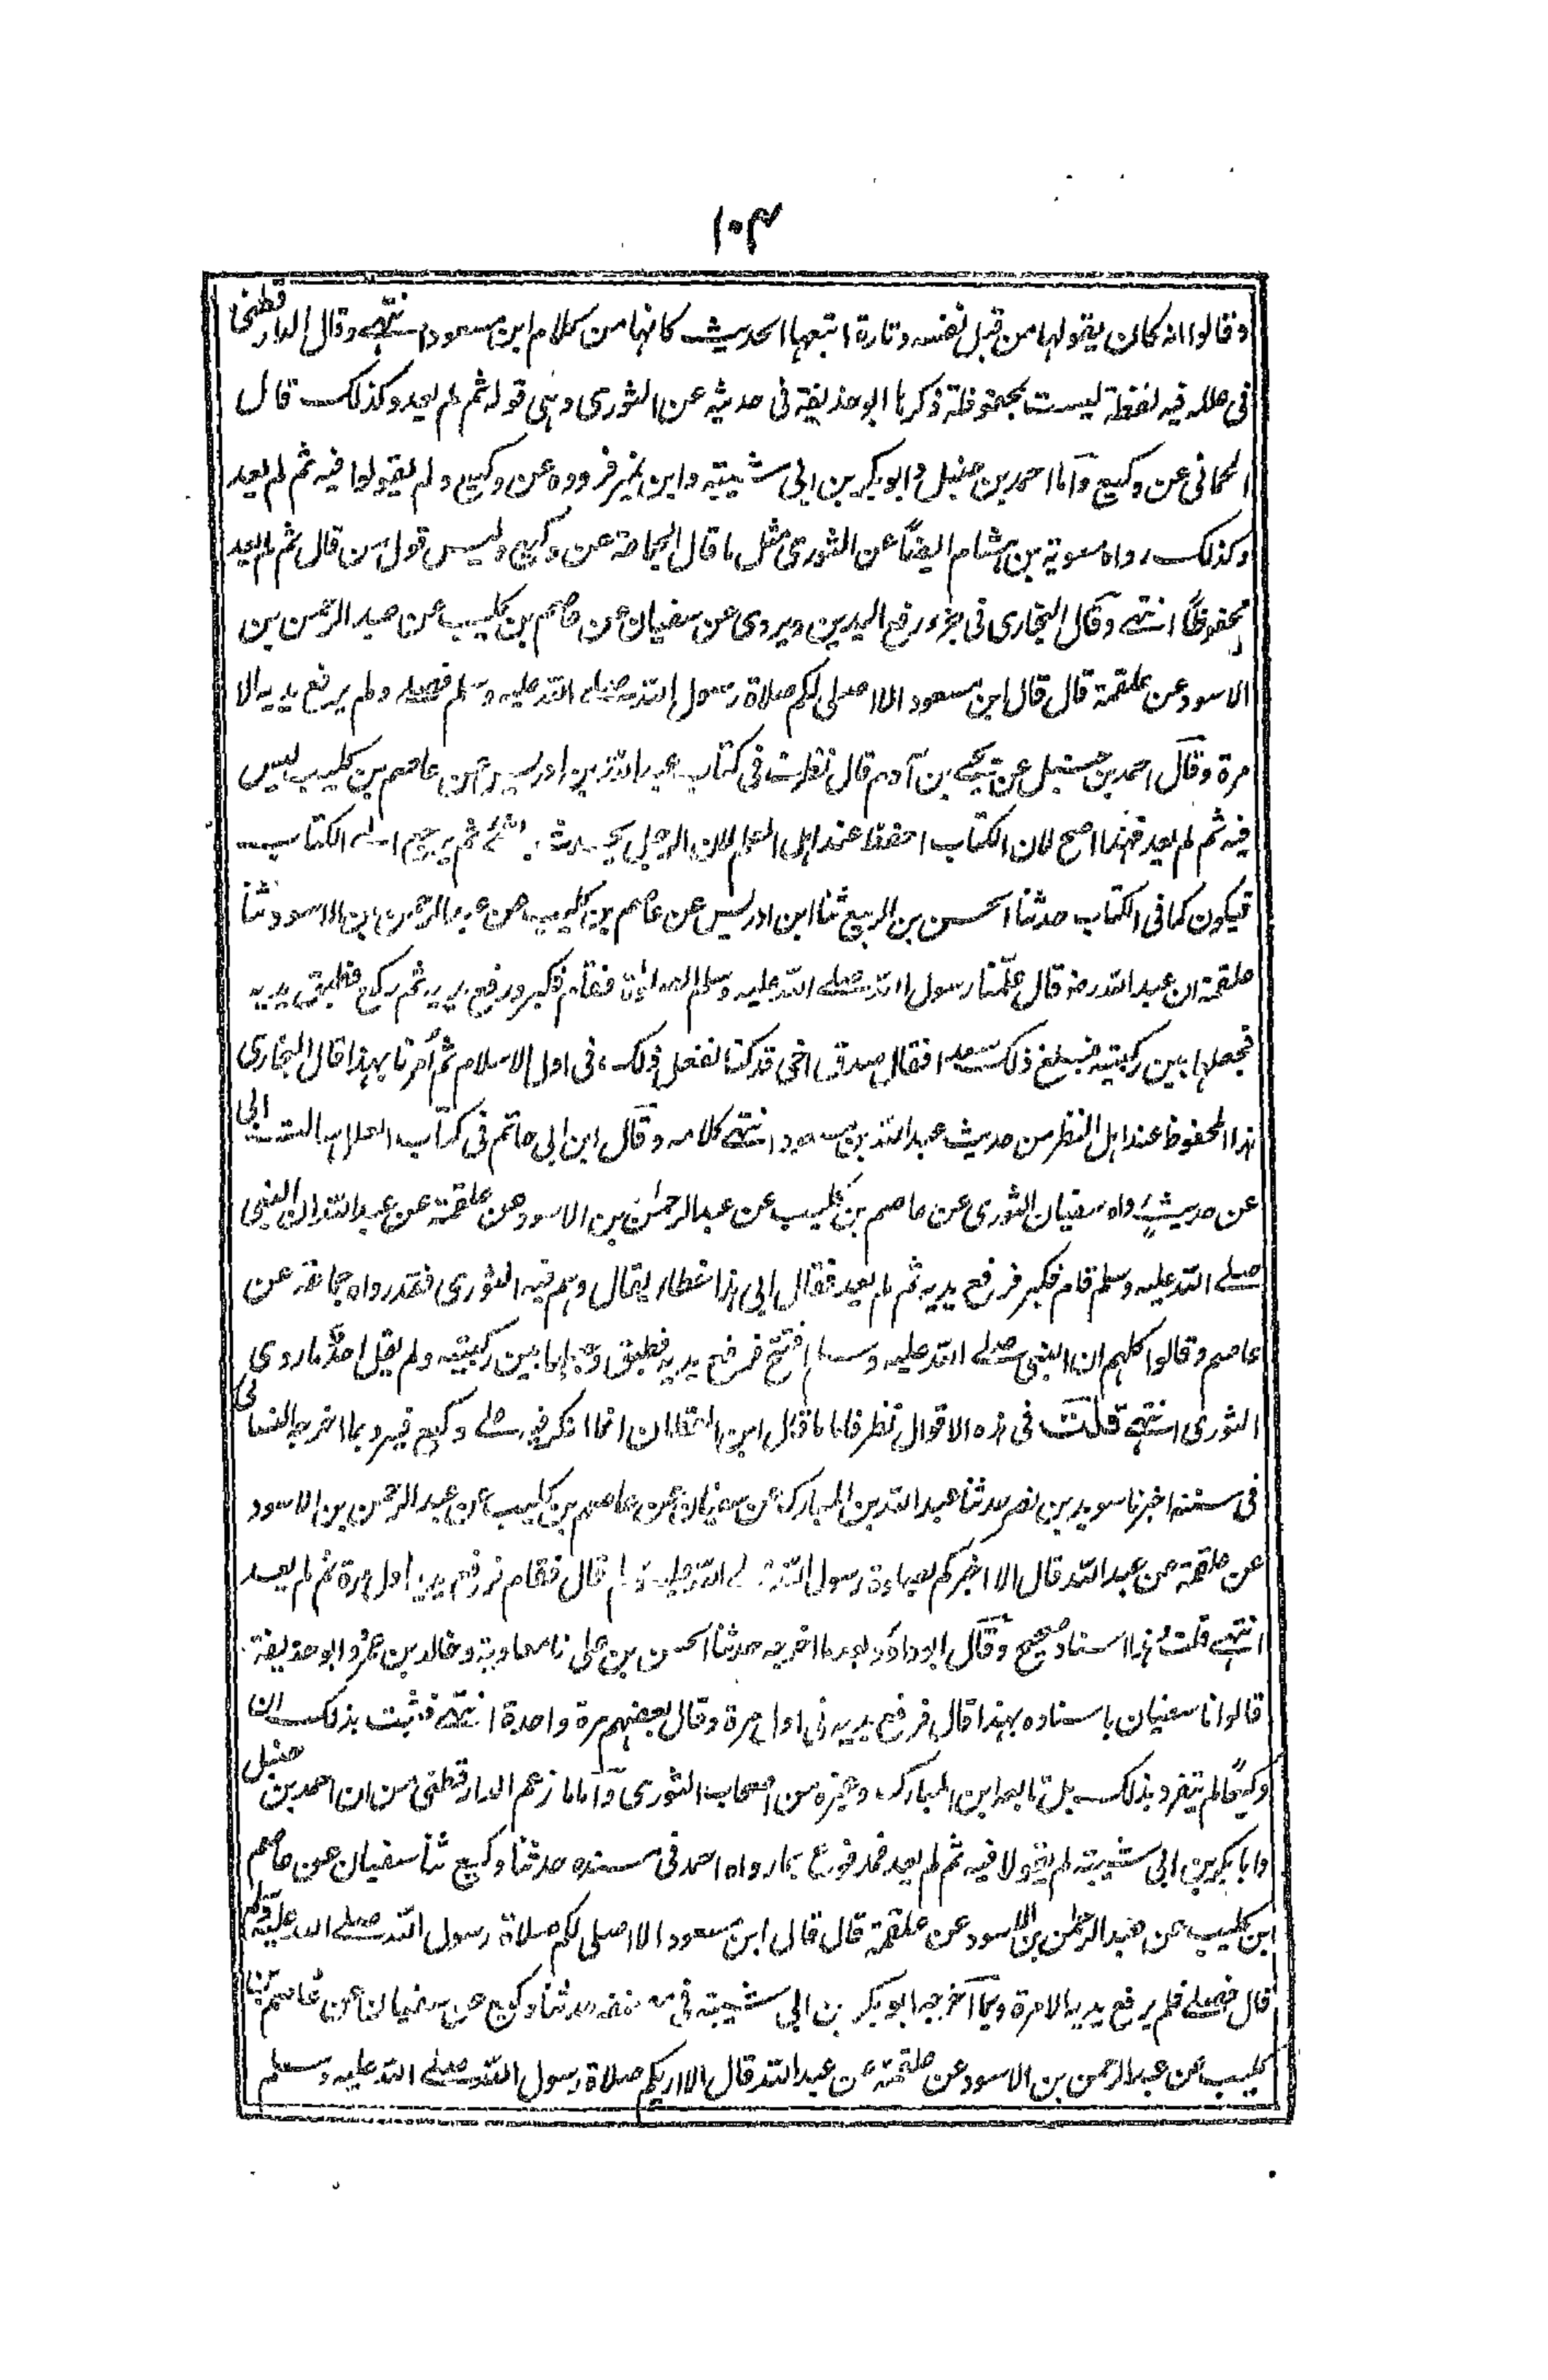 ١٠٣
وقالوا انه كان يقولها من قبل نفسه وتارة اتبعها الحديث كانها من كلام ابن مسعود انتهى وقال الدارقطنى
فى علله فيه لفظة ليست بمحفوظة ذكرها ابو حذيفة فى حديثه عن الثورى وهى قوله ثم لم يعد وكذلك قال
الحمانى عن وكيع وأما احمد بن حنبل وابو بكر بن ابى شيبة وابن نمير فرووه عن وكيع ولم يقولوا فيه ثم لم يعد
وكذلك رواه معوية بن هشام ايضاً عن الثورى مثل ما قال الجماعة عن وكيع وليس قول من قال ثم لم يعد
محفوظاً انتهى وقال البخارى فى جزء رفع اليدين ويروى عن سفيان عن عاصم بن كليب عن عبد الرحمن بن
الاسود عن علقمة قال قال ابن مسعود الا اصلى لكم صلاة رسول الله صلے الله عليه وسلم فصلے ولم يرفع يديه الا
مرة وقال احمد بن حنبل عن يحيى بن آدم قال نظرت فى كتاب عبد الله بن ادريس عن عاصم بن كليب ليس
فيه ثم لم يعد فهذا اصح لان الكتاب احفظ عند اهل العلم لان الرجل يحدث بشئ ثم يرجع الے الكتاب
فيكون كما فى الكتاب حدثنا الحسن بن الربيع ثنا ابن ادريس عن عاصم بن كليب عن عبد الرحمن بن الاسود ثنا
علقمة ان عبد الله رضـ قال علّمنا رسول الله صلے الله عليه وسلم الصلوٰة فقام فكبر ورفع يديه ثم ركع فطبق يديه
فجعلها بين ركبتيه فبلغ ذلك سعدا فقال صدق اخى قد كنا نفعل ذلك فى اول الاسلام ثم أمرنا بهذا قال البخارى
هذا المحفوظ عند اهل النظر من حديث عبد الله بن مسعود انتهى كلامه وقال ابن ابى حاتم فى كتاب العلل سالت ابى
عن حديث رواه سفيان الثورى عن عاصم بن كليب عن عبد الرحمٰن بن الاسود عن علقمة عن عبد الله ان النبى
صلے الله عليه وسلم قام فكبر فرفع يديه ثم لم يعد فقال ابى هذا خطاء يقال وهم فيه الثورى فقد رواه جماعة عن
عاصم وقالوا كلهم ان النبى صلے الله عليه وسلم افتتح فرفع يديه فطبق وجعلها بين ركبتيه ولم يقل احد ما روى
الثورى انتهى قلت فى هذه الاقوال نظر فاما ما قال ابن القطان انما انكر فيه على وكيع فيرد بما اخرجه النسائى
فى سننه اخبرنا سويد بن نصر حدثنا عبد الله بن المبارك عن سفيان عن عاصم بن كليب عن عبد الرحمن بن الاسود
عن علقمة عن عبد الله قال الا اخبركم بصلوة رسول الله صلے الله عليه وسلم قال فقام فرفع يديه اول مرة ثم لم يعد
انتهى قلت هذا اسناد صحيح وقال ابو داؤد بعد ما اخرجه حدثنا الحسن بن على نا معاوية وخالد بن عمرو ابو حذيفة
قالوا نا سفيان باسناده بهذا قال فرفع يديه فى اول مرة وقال بعضهم مرة واحدة انتهى فثبت بذلك ان
وكيعًا لم يتفرد بذلك بل تابعه ابن المبارك وغيره من اصحاب الثورى وأما ما زعم الدارقطنى من ان احمد بن حنبل
وابا بكر بن ابى شيبة لم يقولا فيه ثم لم يعد فمدفوع بما رواه احمد فى مسنده حدثنا وكيع ثنا سفيان عن عاصم
ابن كليب عن عبد الرحمٰن بن الاسود عن علقمة قال قال ابن مسعود الا اصلى لكم صلاة رسول الله صلے الله عليه وسلم
قال فصلے فلم يرفع يديه الا مرة وبما اخرجه ابو بكر بن ابى شيبة فى مصنفه حدثنا وكيع عن سفيان عن عاصم بن
كليب عن عبد الرحمن بن الاسود عن علقمة عن عبد الله قال الا اريكم صلاة رسول الله صلے الله عليه وسلم